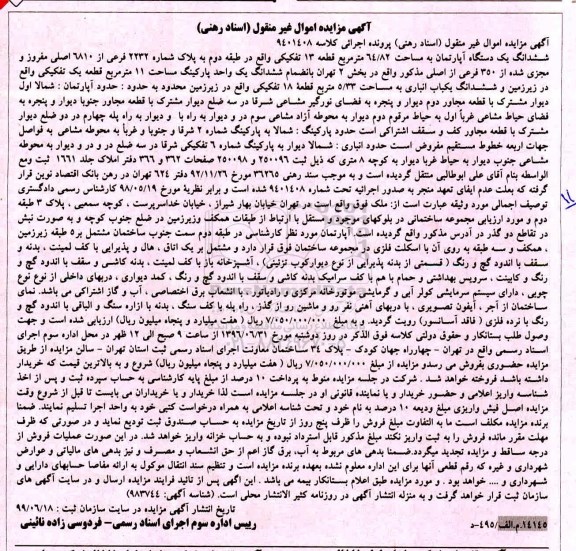 آگهی مزایده اموال غیر منقول (اسناد رهنی)
آگهی مزایده اموال غیر منقول (اسناد رهنی) پرونده اجرائی کلاسه ۹۴۰۱۴۰۸
ششدانگ یک دستگاه آپارتمان به مساحت ۶۴/۸۲ مترمربع قطعه ۱۳ تفکیکی واقع در طبقه دوم به پلاک شماره ۲۲۳۲ فرعی از ۶۸۱۰ اصلی مفروز و
مجزی شده از ۳۵۰ فرعی از اصلی مذکور واقع در بخش ۲ تهران بانضمام ششدانگ یک واحد پارکینگ مساحت ۱۱ مترمربع قطعه یک تفکیکی واقع
در زیرزمین و ششدانگ یکباب انباری به مساحت ۵/۳۳ متر مربع قطعه ۱۸ تفکیکی واقع در زیرزمین محدود به حدود : حدود آپارتمان : شمالا اول
دیوار مشترک با قطعه مجاور دوم دیوار و پنجره به فضای نورگیر مشاعی شرقا در سه ضلع دیوار مشترک با قطعه مجاور جنوبا دیوار و پنجره به
فضای حیاط مشاعی غرباً اول به حیاط مرقوم دوم دیوار به محوطه آزاد مشاعی سوم در و دیوار به راه با و دیوار به راه پله چهارم در دو ضلع دیوار
مشترک با قطعه مجاور کف و سقف اشتراکی است حدود پارکینگ : شمالا به پارکینگ شماره ۲ شرقا و جنوبا و غرباً به محوطه مشاعی به فواصل
جهات اربعه خطوط مستقیم مفروض است حدود انباری : شمالا دیوار به پارکینگ شماره ۶ تفکیکی شرقا در سه ضلع در و در و دیوار به محوطه
مشاعی جنوب دیوار به حیاط غربا دیوار به کوچه ۸ متری که ذیل ثبت ۲۵۰۰۹۶ و ۲۵۰۰۹۸ صفحات ۳۶۲ و ۳۶۶ دفتر املاک جلد ۱۶۶۱ ثبت ومع
الواسطه بنام آقای علی ابوطالبی منتقل گردیده است و به موجب سند رهنی ۳۶۲۶۵ مورخ ۹۲/۱۱/۲۶ دفتر ۶۲۴ تهران در رهن بانک اقتصاد نوین قرار
گرفته که بعلت عدم ایفای تعهد منجر به صدور اجرائیه تحت شماره ۹۴۰۱۴۰۸ شده است و برابر نظریه مورخ ۹۸/۰۵/۱۹ کارشناس رسمی دادگستری
توصیف اجمالی مورد وثیقه عبارت است از: ملک فوق واقع است در تهران خیابان بهار شیراز ، خیابان خداسرپرست ، کوچه سمعیی ، پلاک ۳ طبقه
دوم و مورد ارزیابی مجموعه ساختمانی در بلوکهای موجود و مستقل با ارتباط از طبقات همکف وزیرزمین در ضلع جنوب کوچه و به صورت نبش
در تقاطع دو گذر در آدرس مذکور واقع گردیده است. آپارتمان مورد نظر کارشناسی در طبقه دوم سمت جنوب ساختمان مشتمل بره طبقه زیرزمین
، همکف و سه طبقه به روی آن با اسکلت فلزی در مجموعه ساختمان فوق قرار دارد و مشتمل بر یک اتاق ، هال و پذیرایی با کف لمینت ، بدنه و
سقف با اندود گچ و رنگ ( قسمتی از بدنه پذیرایی از نوع دیوارکوب تزئینی) ، آشپزخانه باز با کف لمینت ، بدنه کاشی و سقف با اندود گچ و
رنگ و کابینت ، سرویس بهداشتی و حمام با هم با کف سرامیک بدنه کاشی و سقف با اندود گچ و رنگ ، کمد دیواری ، دربهای داخلی از نوع نوع
چوبی ، دارای سیستم سرمایشی کولر آبی و گرمایشی موتورخانه مرکزی و رادیاتور ، با انشعاب برق اختصاصی ، آب و گاز اشتراکی می باشد. نمای
ساختمان از آجر ، آیفون تصویری ، با دربهای آهنی نفر رو و ماشین رو از گذر ، راه پله با کف سنگ ، بدنه با ازاره سنگ و الباقی با اندود گچ و
رنگ با نرده فلزی ( فاقد آسانسور) رویت گردید. و به مبلغ ۷/۰۵۰/۰۰۰/۰۰۰ ریال ( هفت میلیارد و پنجاه میلیون ریال) ارزیابی شده است و جهت
وصول طلب بستانکار و حقوق دولتی کلاسه فوق الذکر در روز مورخ از ساعت ۹ صبح الی ۱۲ ظهر در محل اداره سوم اجرای
اسناد رسمی واقع در تهران – چهارراه جهان کودک – پلاک ۳۴ – ساختمان معاونت اجرای اسناد رسمی ثبت استان تهران – سالن مزایده از طریق
مزایده حضوری بفروش می رسدو مزایده از مبلغ ۷/۰۵۰/۰۰۰/۰۰۰ ریال ( هفت میلیارد و پنجاه میلیون ریال) شروع و به بالاترین قیمت که خریدار
داشته باشد فروخته خواهد شد . شرکت در جلسه مزایده منوط به پرداخت ۱۰ درصد از مبلغ پایه کارشناسی به حساب سپرده ثبت و پس از اخذ
شناسه واریز اعلامی و حضور خریدار و یا نماینده قانونی او در جلسه مزایده است لذا خریدار و یا خریداران می بایست تا قبل از شروع وقت
مزایده اصل فیش واریزی مبلغ ودیعه ۱۰ درصد به نام خود و تحت شناسه اعلامی به همراه درخواست کتبی خود به واحد اجرا تسلیم نمایند. ضمنا
برنده مزایده مکلف است ما به التفاوت مبلغ فروش را ظرف پنج روز از تاریخ مزایده به حساب صندوق ثبت تودیع نماید و در صورتی که ظرف
مهلت مقرر مانده فروش را به ثبت واریز نکند مبلغ مذکور قابل استرداد نبوده و به حساب خزانه واریز خواهد شد. در این صورت عملیات فروش از
درجه ساقط و مزایده تجدید میگردد.ضمنا بدهی های مربوط به آب، برق گاز اعم از حق انشعاب و مصرف و نیز بدهی های مالیاتی و عوارض
شهرداری و غیره که رقم قطعی آنها برای این اداره معلوم نشده بعهده برنده مزایده است و تنظیم سند انتقال موکول به ارائه مفاصا حسابهای دارایی و
شهرداری و .... خواهد بود . و مورد مزایده طبق اعلام بستانکار بیمه می باشد . این آگهی پس از تائید فرایند مزایده ارسال و در سایت آگهی های
سازمان ثبت قرار خواهد گرفت و به منزله انتشار آگهی در روزنامه کثیر الانتشار محلی است. (شناسه آگهی: ۹۸۳۷۴۴)
تاریخ انتشار آگهی مزایده در سایت سازمان ثبت : ۹۹/۰۶/۱۸
رییس اداره سوم اجرای اسناد رسمی– فردوسی زاده نائینی
۱۴۱۴۵.م.الف/۴۹۵-د